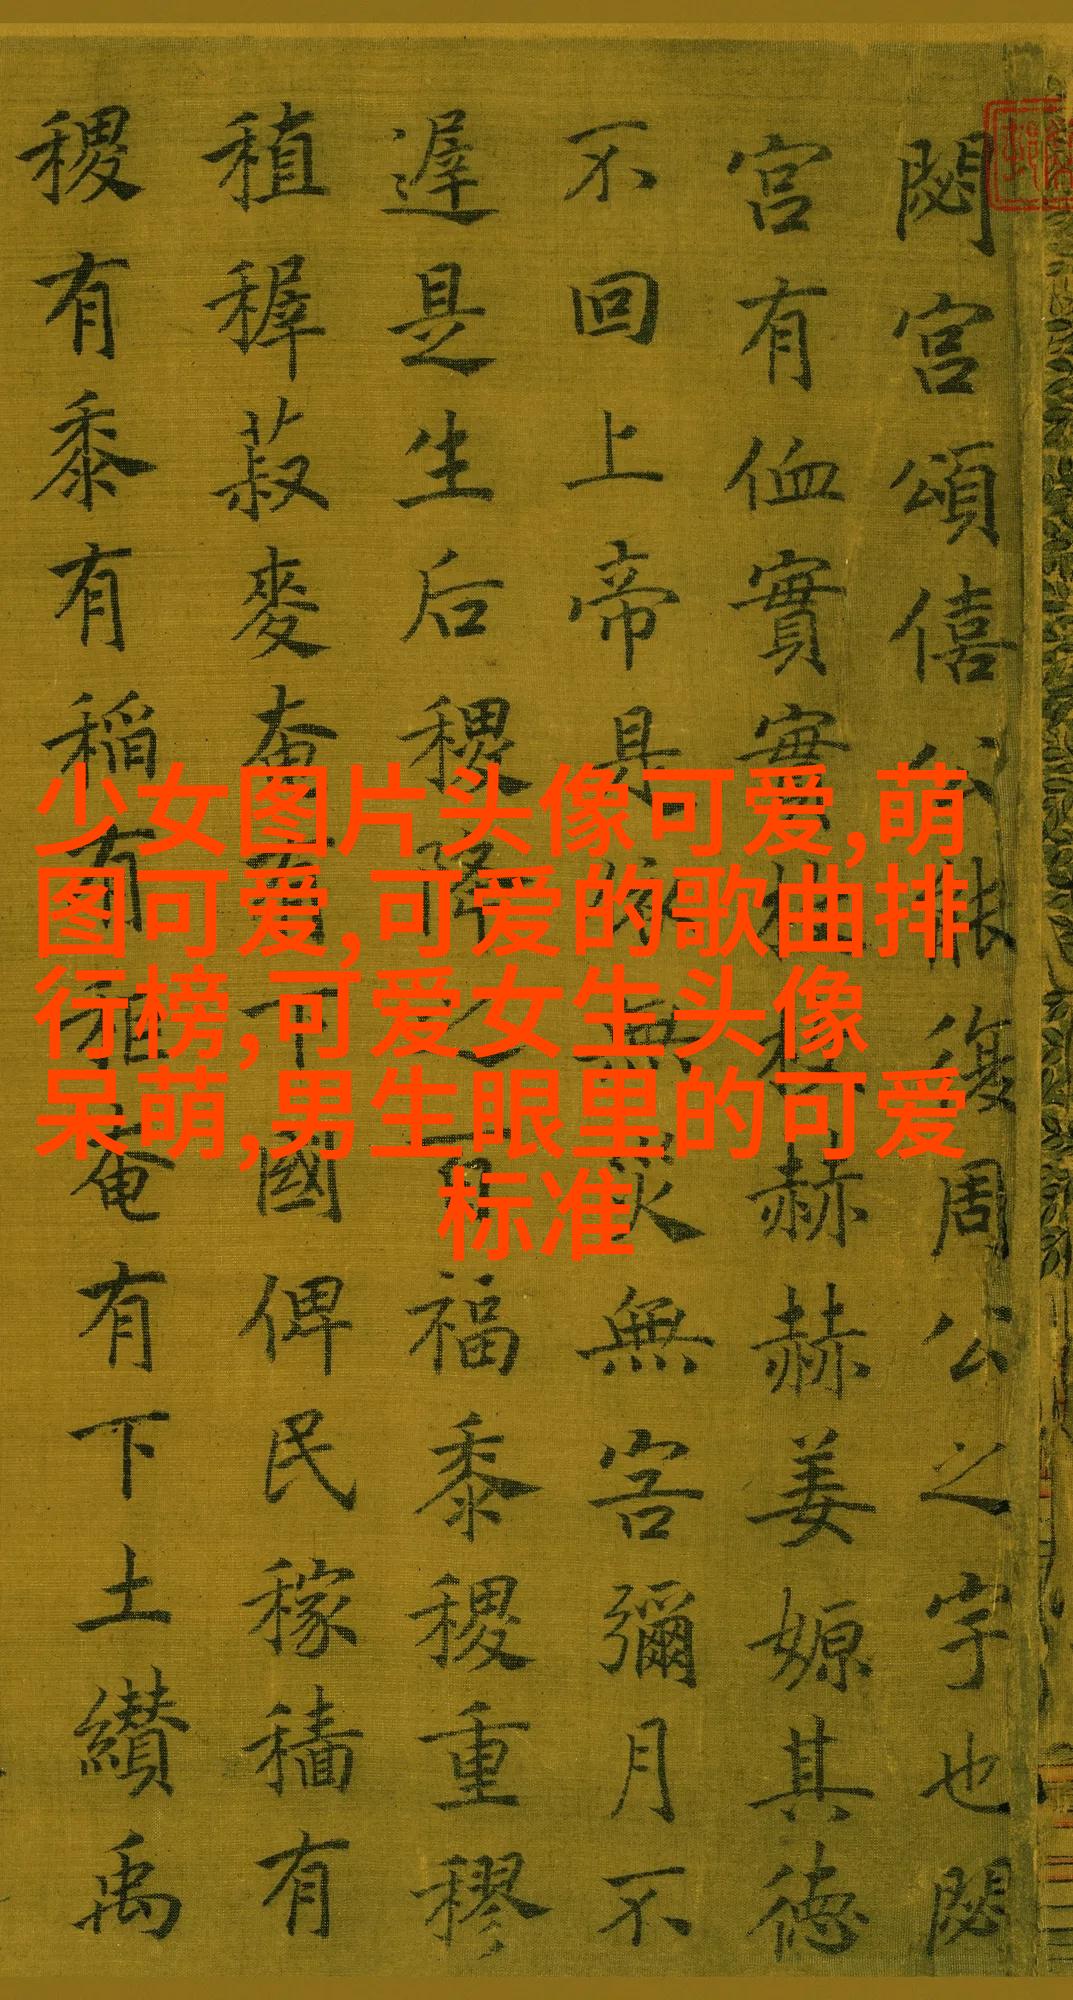 閟宮頌僖公能復周公之宇也閟
宮有侐實實枚枚赫赫姜嫄其德
不回上帝是依無災無害彌月不
遲是生后稷降之百福黍稷重穋
稙稺菽麥奄有下國俾民稼穡有
稷有黍有稻有秬奄有下土纘禹
少女图片头像可爱,萌
图可爱,可爱的歌曲排
行榜,可爱女生头像
呆萌,男生眼里的可爱
标准